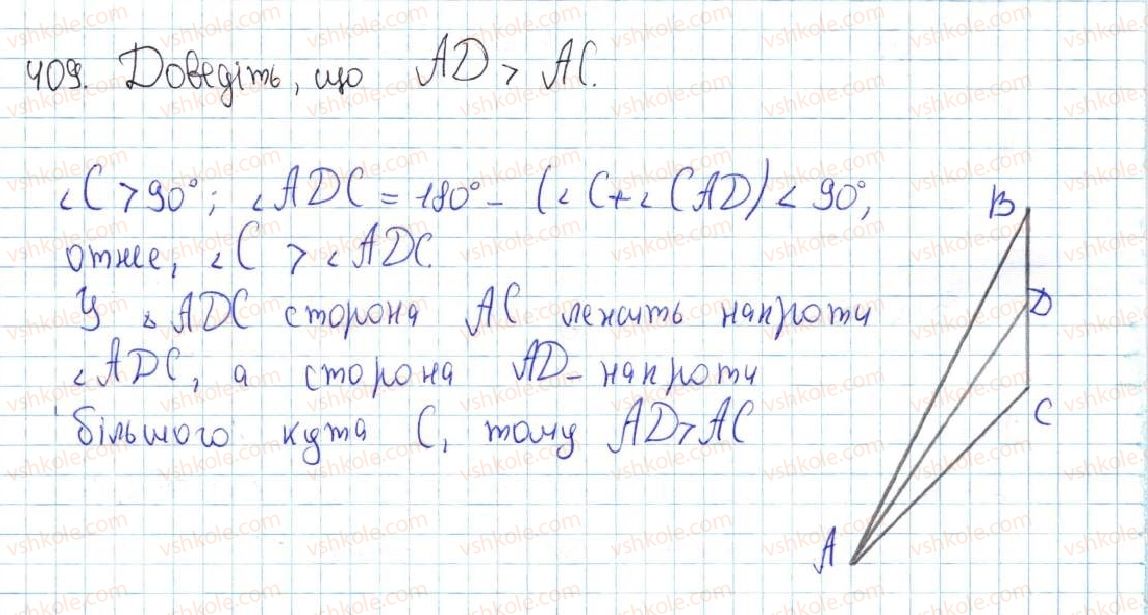 409. Доведіть, що AD > AC.
∠C > 90°; ∠ADC = 180° - (∠C + ∠CAD) < 90°,
отже, ∠C > ∠ADC.
У △ADC сторона AC лежить напроти
∠ADC, а сторона AD - напроти
більшого кута C, тому AD > AC
B
D
C
A
vshkole.com